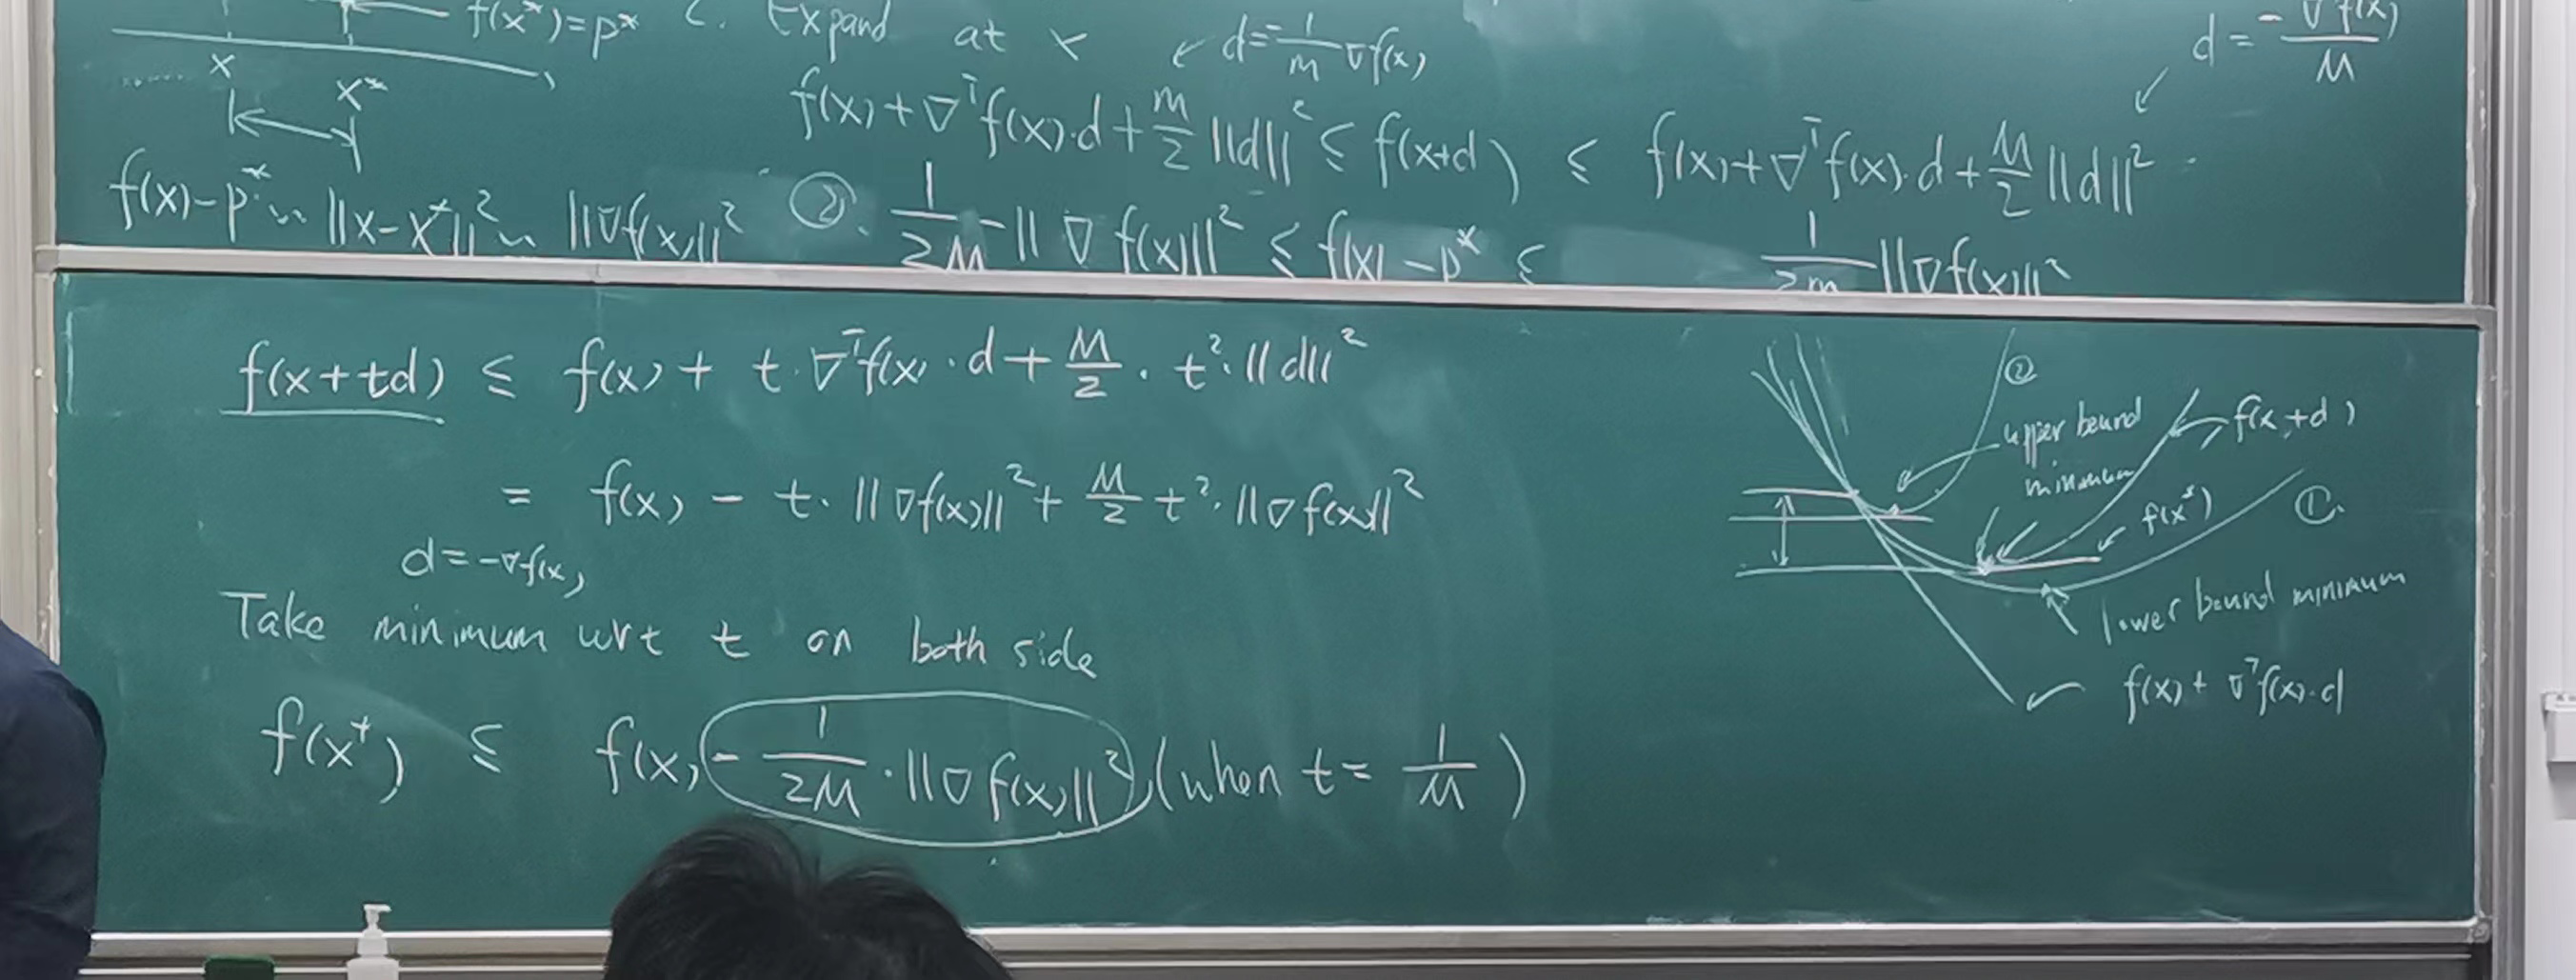 f(x*)=p* 2. Expand at x ↙ d=-1/m ∇f(x)
d = -∇f(x)/M
x
x*
f(x)+∇ᵀf(x)·d+m/2||d||² ≤ f(x+d) ≤ f(x)+∇ᵀf(x)·d+M/2||d||²
f(x)-p* ~ ||x-x*||² ~ ||∇f(x)||² ②. 1/2M ||∇f(x)||² ≤ f(x)-p* ≤ 1/2m ||∇f(x)||²
f(x+td) ≤ f(x)+ t·∇ᵀf(x)·d+M/2·t²·||d||²
= f(x) - t·||∇f(x)||²+M/2 t²·||∇f(x)||²
d=-∇f(x)
Take minimum wrt t on both side
f(x⁺) ≤ f(x) - 1/2M·||∇f(x)||² (when t= 1/M)
②
upper bound
minimum
f(x+d)
f(x*)
①.
lower bound minimum
f(x)+ ∇ᵀf(x)·d